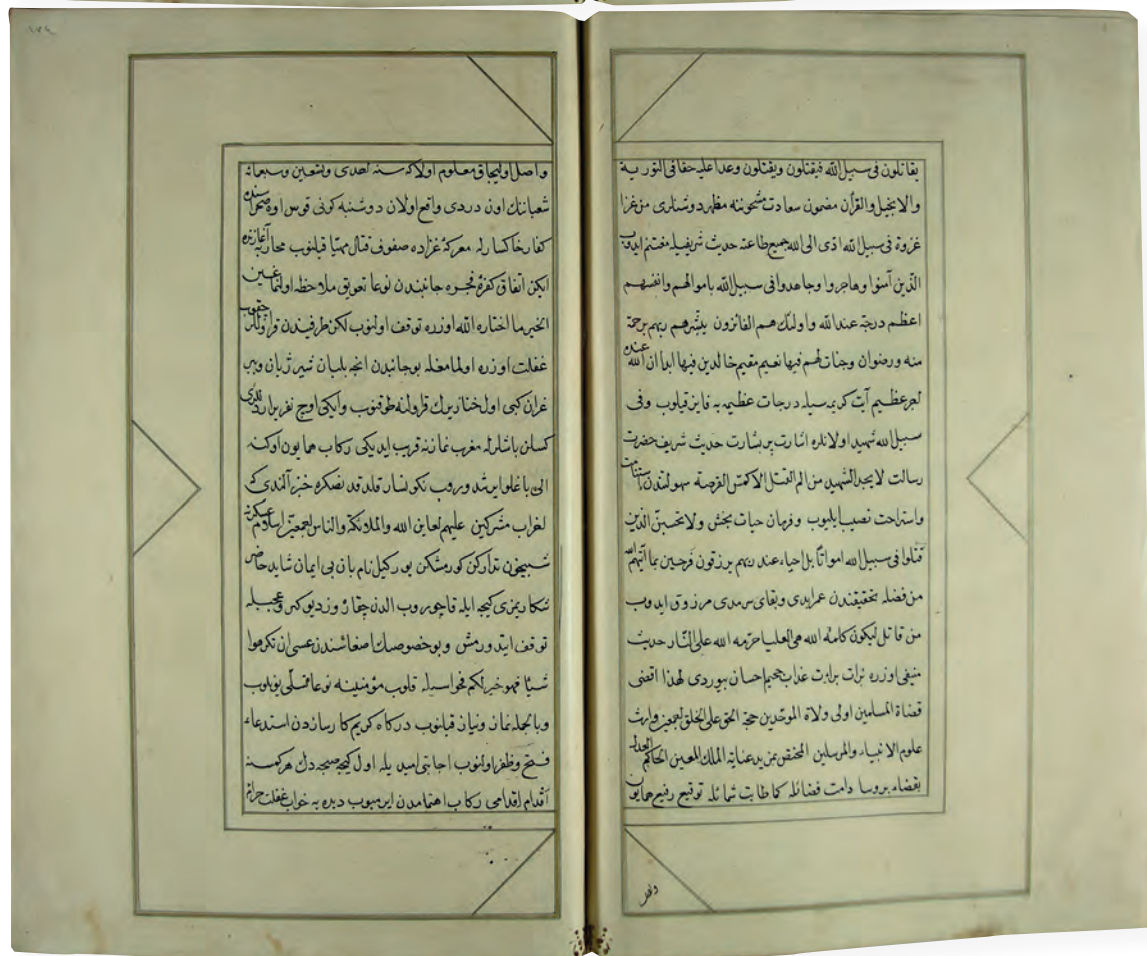 يقاتلون فى سبيل الله فيقتلون ويقتلون وعدا عليه حقا فى التورية
والانجيل والقرأن مضمون سعادت مشحوننه مظهر دوشنلرى من غزا
غزوة فى سبيل الله ادى الى الله جميع طاعته حديث شريفيله مغتنم ايدوب
الذين آمنوا وهاجروا وجاهدوا فى سبيل الله باموالهم وانفسهم
اعظم درجة عند الله واولئك هم الفائزون يبشرهم ربهم برحمة
منه ورضوان وجنات لهم فيها نعيم مقيم خالدين فيها ابدا ان الله عنده
اجر عظيم آيت كريمه سيله درجات عظيمه يه فايز قيلوب وفى
سبيل الله شهيد اولانلره اشارت پر بشارت حديث شريف حضرت
رسالت لا يجد الشهيد من الم القتل الا كمس القرصة سهولتندن
واستراحت نصيب ايليوب وفرمان حيات بخش ولا تحسبن الذين
قتلوا فى سبيل الله امواتا بل احياء عند ربهم يرزقون فرحين بما آتيهم الله
من فضله تحقيقندن عمر ابدى وبقاى سرمدى مرزوق ايدوب
من قاتل ليكون كلمة الله هى العليا حرمه الله على النار حديث
منيفى اوزره برات براءت عذاب جحيم احسان بيوردى لهذا اقضى
قضاة المسلمين اولى ولاة الموحدين حجة الحق على الخلق اجمعين وارث
علوم الانبياء والمرسلين المختص بمزيد عناية الملك المعين الحاكم العدل
بقضاء بروسا دامت فضائله كما طابت شمائله توقيع رفيع همايون
واصل
١٧٤
واصل اوليجاق معلوم اولا كه سنه احدى وتسعين وسبعمائه
شعباننك اون دردى واقع اولان دوشنبه كونى قوس اوه صحراسنده
كفار خاكسار له معركهٔ غزاده صفوف قتال مهيا قيلنوب محاربه آغازنده
ايكن اتفاق كفرهٔ فجره جانبندن نوعا تعويق ملاحظه اولنماغين
الخير ما اختاره الله اوزره توقف اولنوب لكن طرفيندن قراوللر چقوب
غفلت اوزره اولمامغله بو جانبدن انجه بلبان شير ژيان وببر
غران كبى اول خنازيرك قراولنه طوقنوب وايكى اوچ نفر يرار
كسلن باشلرله مغرب نمازنه قريب ايديكى ركاب همايون اوكنه
الى باغلو ايرشدوروب نكونسار قلدقدنصكره خبر آلندى كه
لغراب مشركين عليهم لعاين الله والملائكة والناس اجمعين اسلام عسكرنه
شبيخون تداركن كورمشكن يوركيل نام بان بى ايمان شايد حاضر
شكاريمزى كيجه ايله قاچوروب الدن چقاروز ديو كس وعجله
توقف ايتدورمش وبو خصوصك اصغاسندن عسى ان تكرهوا
شيئا فهو خير لكم فحواسيله قلوب مؤمنينه نوعا تسلى بولوب
وبالجمله نماز ونياز قيلنوب دركاه كريم كارسازدن استدعاء
فتح وظفر اولنوب اجابتى اميديله اول كيجه صبحه دك هركسنه
اقدام اقدامى ركاب اهتمامدن ايرميوب ديده يه خواب غفلت حرام